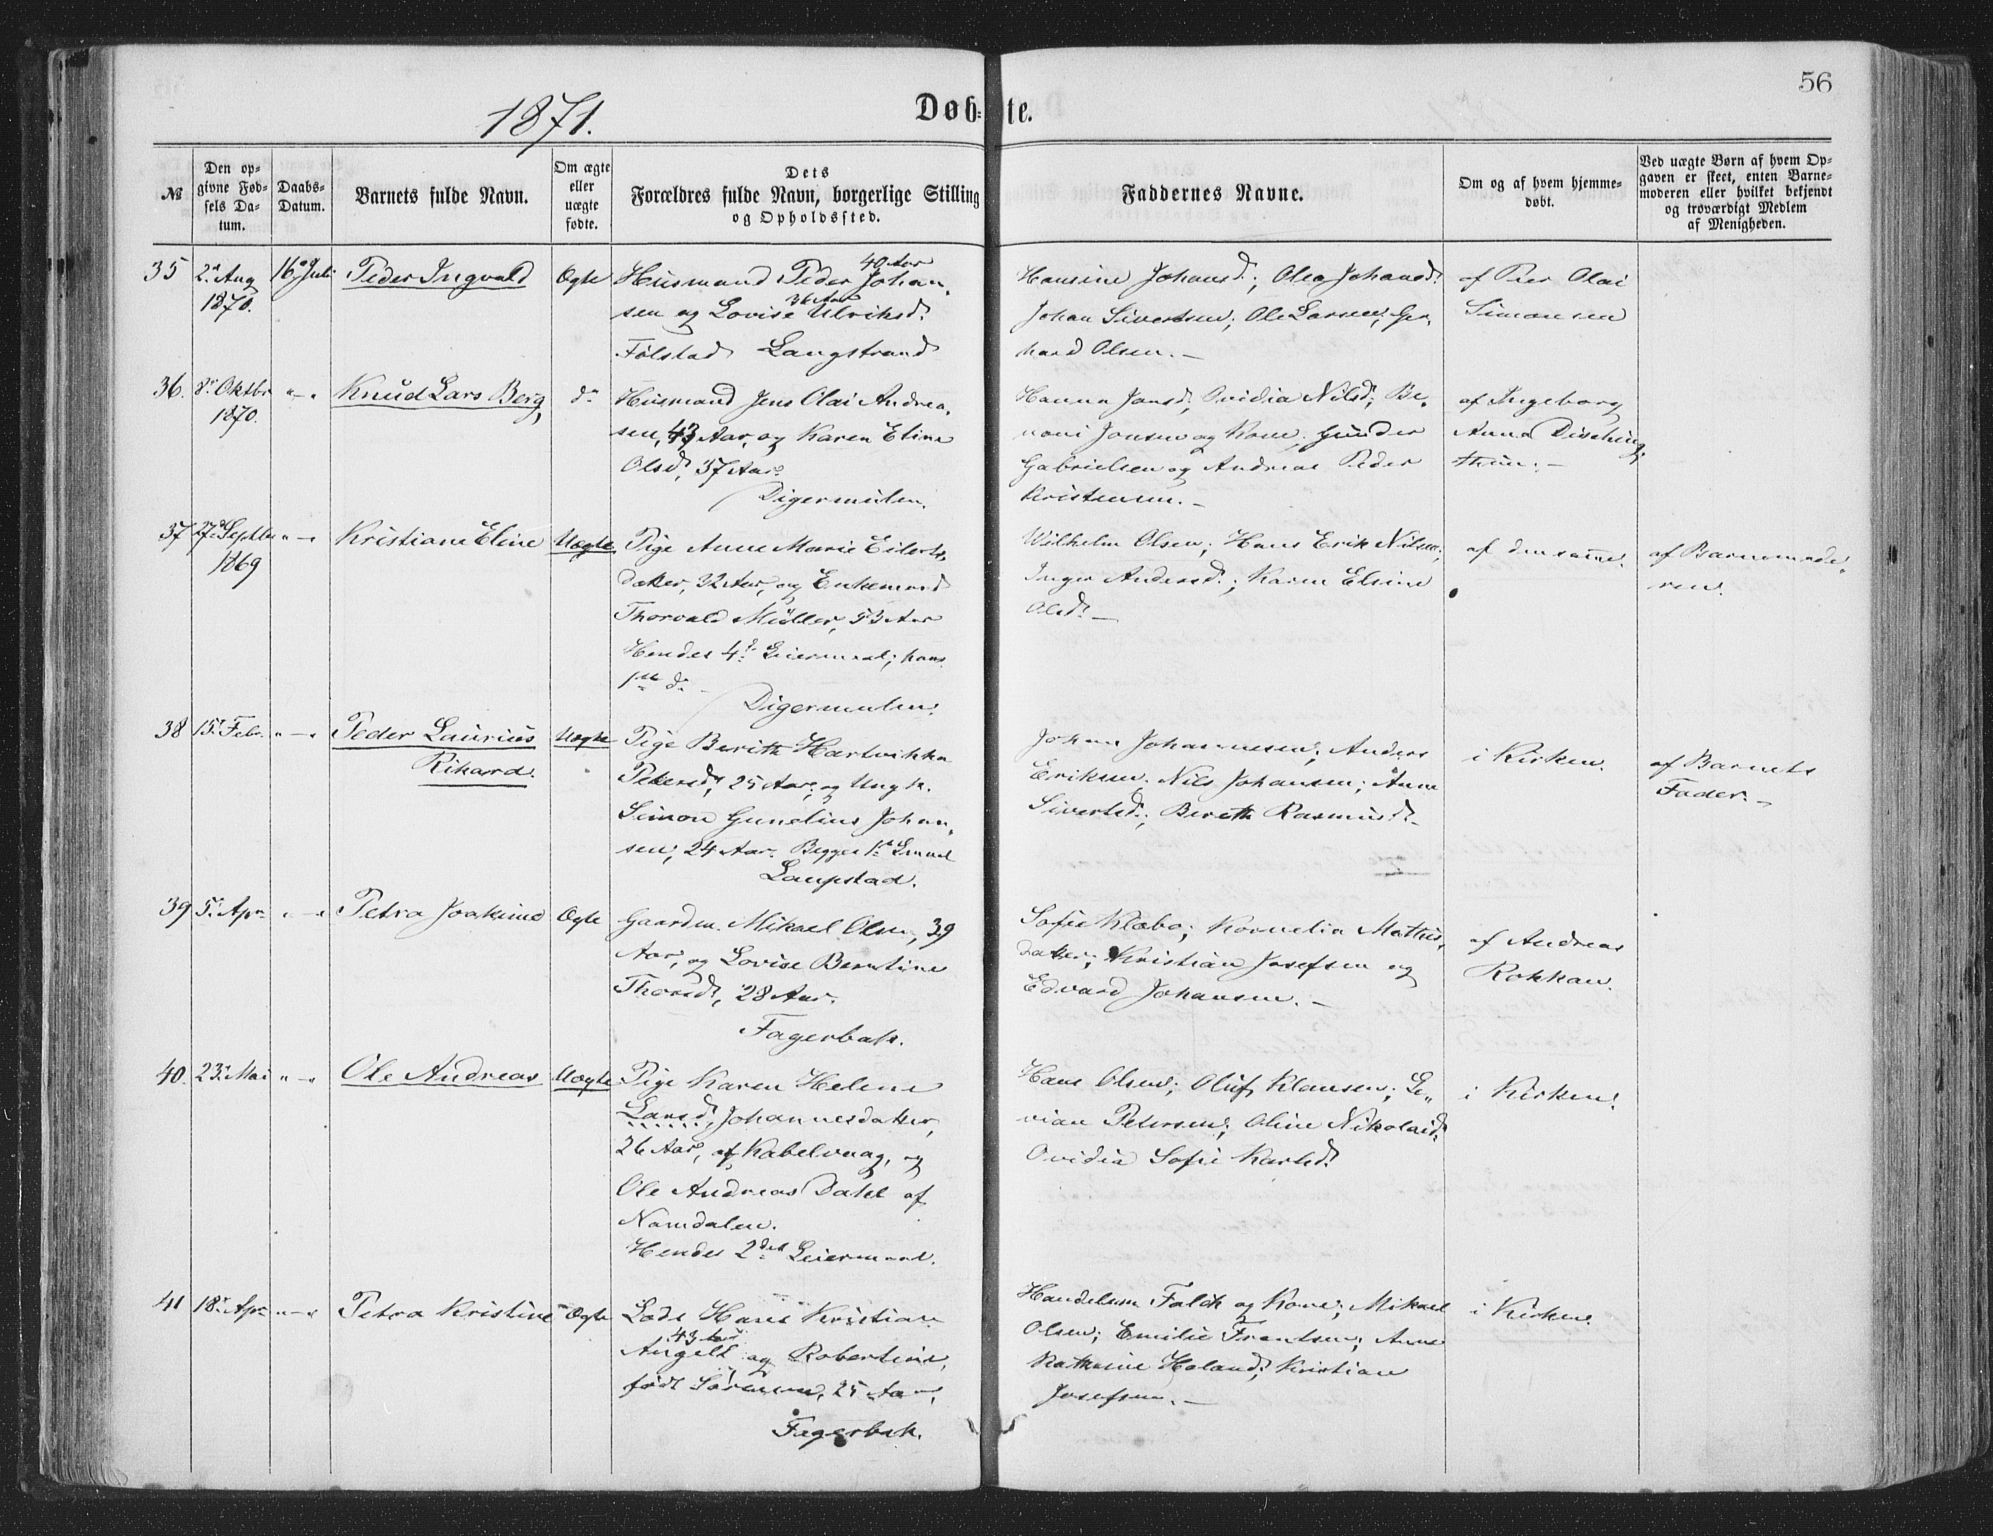 56
1871.
Døb-
te.
№
Den op-
givne Fød-
sels Da-
tum.
Daabs-
Datum.
Barnets fulde Navn.
Om ægte
eller
uægte
fødte.
Dets
Forældres fulde Navn, borgerlige Stilling
og Opholdssted.
Faddernes Navne.
Om og af hvem hjemme-
døbt.
Ved uægte Børn af hvem Op-
gaven er skeet, enten Barne-
moderen eller hvilket bekjendt
og troværdigt Medlem
af Menigheden.
35
2d Aug
1870.
16d Juli
Peder Ingvald
Ægte
40 Aar
Husmand Peder Johan-
36 Aar
sen og Lovise Ulriksd.
Følstad Langstrand
Hansine Johansd.; Olea Johansd.
Johan Sivertsen; Ole Larsen; Ger-
hard Olsen. –
af Peer Olai
Simonsen
36.
8d Oktbr
1870.
" – "
Knud Lars Berg,
do
Husmand Jens Olai Andrea-
sen, 43 Aar, og Karen Eline
Olsd, 37 Aar.
Digermulen.
Hanna Jansd, Ovidia Nilsd; Be-
noni Jensen og Kone; Gunder
Gabrielsen og Andreas Peder
Kristensen. –
af Ingeborg
Anna Disching-
thun. –
37
27d Septbr
1869
" – "
Kristiane Eline
Uægte
Pige Anne Marie Eilerts-
datter, 32 Aar, og Enkemand
Thorvald Müller, 53 Aar
Hendes 4de Leiermaal; hans
1ste do –
Digermulen.
Wilhelm Olsen; Hans Erik Nilsen;
Inger Andersd.; Karen Elsine
Olsd. –
af den samme.
af Barnemode-
ren.
38
15d Febr.
" – "
Peder Laurius
Rikard.
Uægte
Pige Berith Hartvikka
Petersd, 25 Aar, og Ungk.
Simon Gunelius Johan-
sen, 24 Aar. Begges 1ste
Laupstad.
Johan Johannesen; Anders
Eriksen; Nils Johansen; Anne
Sivertsd.; Berith Rasmusd. –
i Kirken.
af Barnets
Fader. –
39
5d Apr
" – "
Petra Joakime
Ægte
Gaardm. Mikael Olsen, 39
Aar, og Lovise Berntine
Thorsd, 28 Aar.
Fagerbak.
Sofie Klæbo; Kornelia Mathis-
datter; Kristian Josefsen og
Edvard Johansen. –
af Andreas
Rokkan.
40.
23d Mai
" – "
Ole Andreas
Uægte
Pige Karen Helene
Larsd, Johannesdatter,
26 Aar, af Kabelvaag, og
Ole Andreas Dahl af
Namdalen.
Hendes 2det Leiermaal.
Hans Olsen; Oluf Klausen; Le-
vian Petersen; Oline Nikolaid.
Ovidia Sofie Karlsd.
i Kirken.
41
18d Apr
" – "
Petra Kristine
Ægte
Lods Hans Kristian
43 Aar
Angell og Robertine,
født Sørensen, 25 Aar,
Fagerbak.
Handelsm Falch og Kone; Mikael
Olsen; Emilie Frantsen; Anne
Kathrine Holand; Kristian
Josefsen. –
i Kirken.